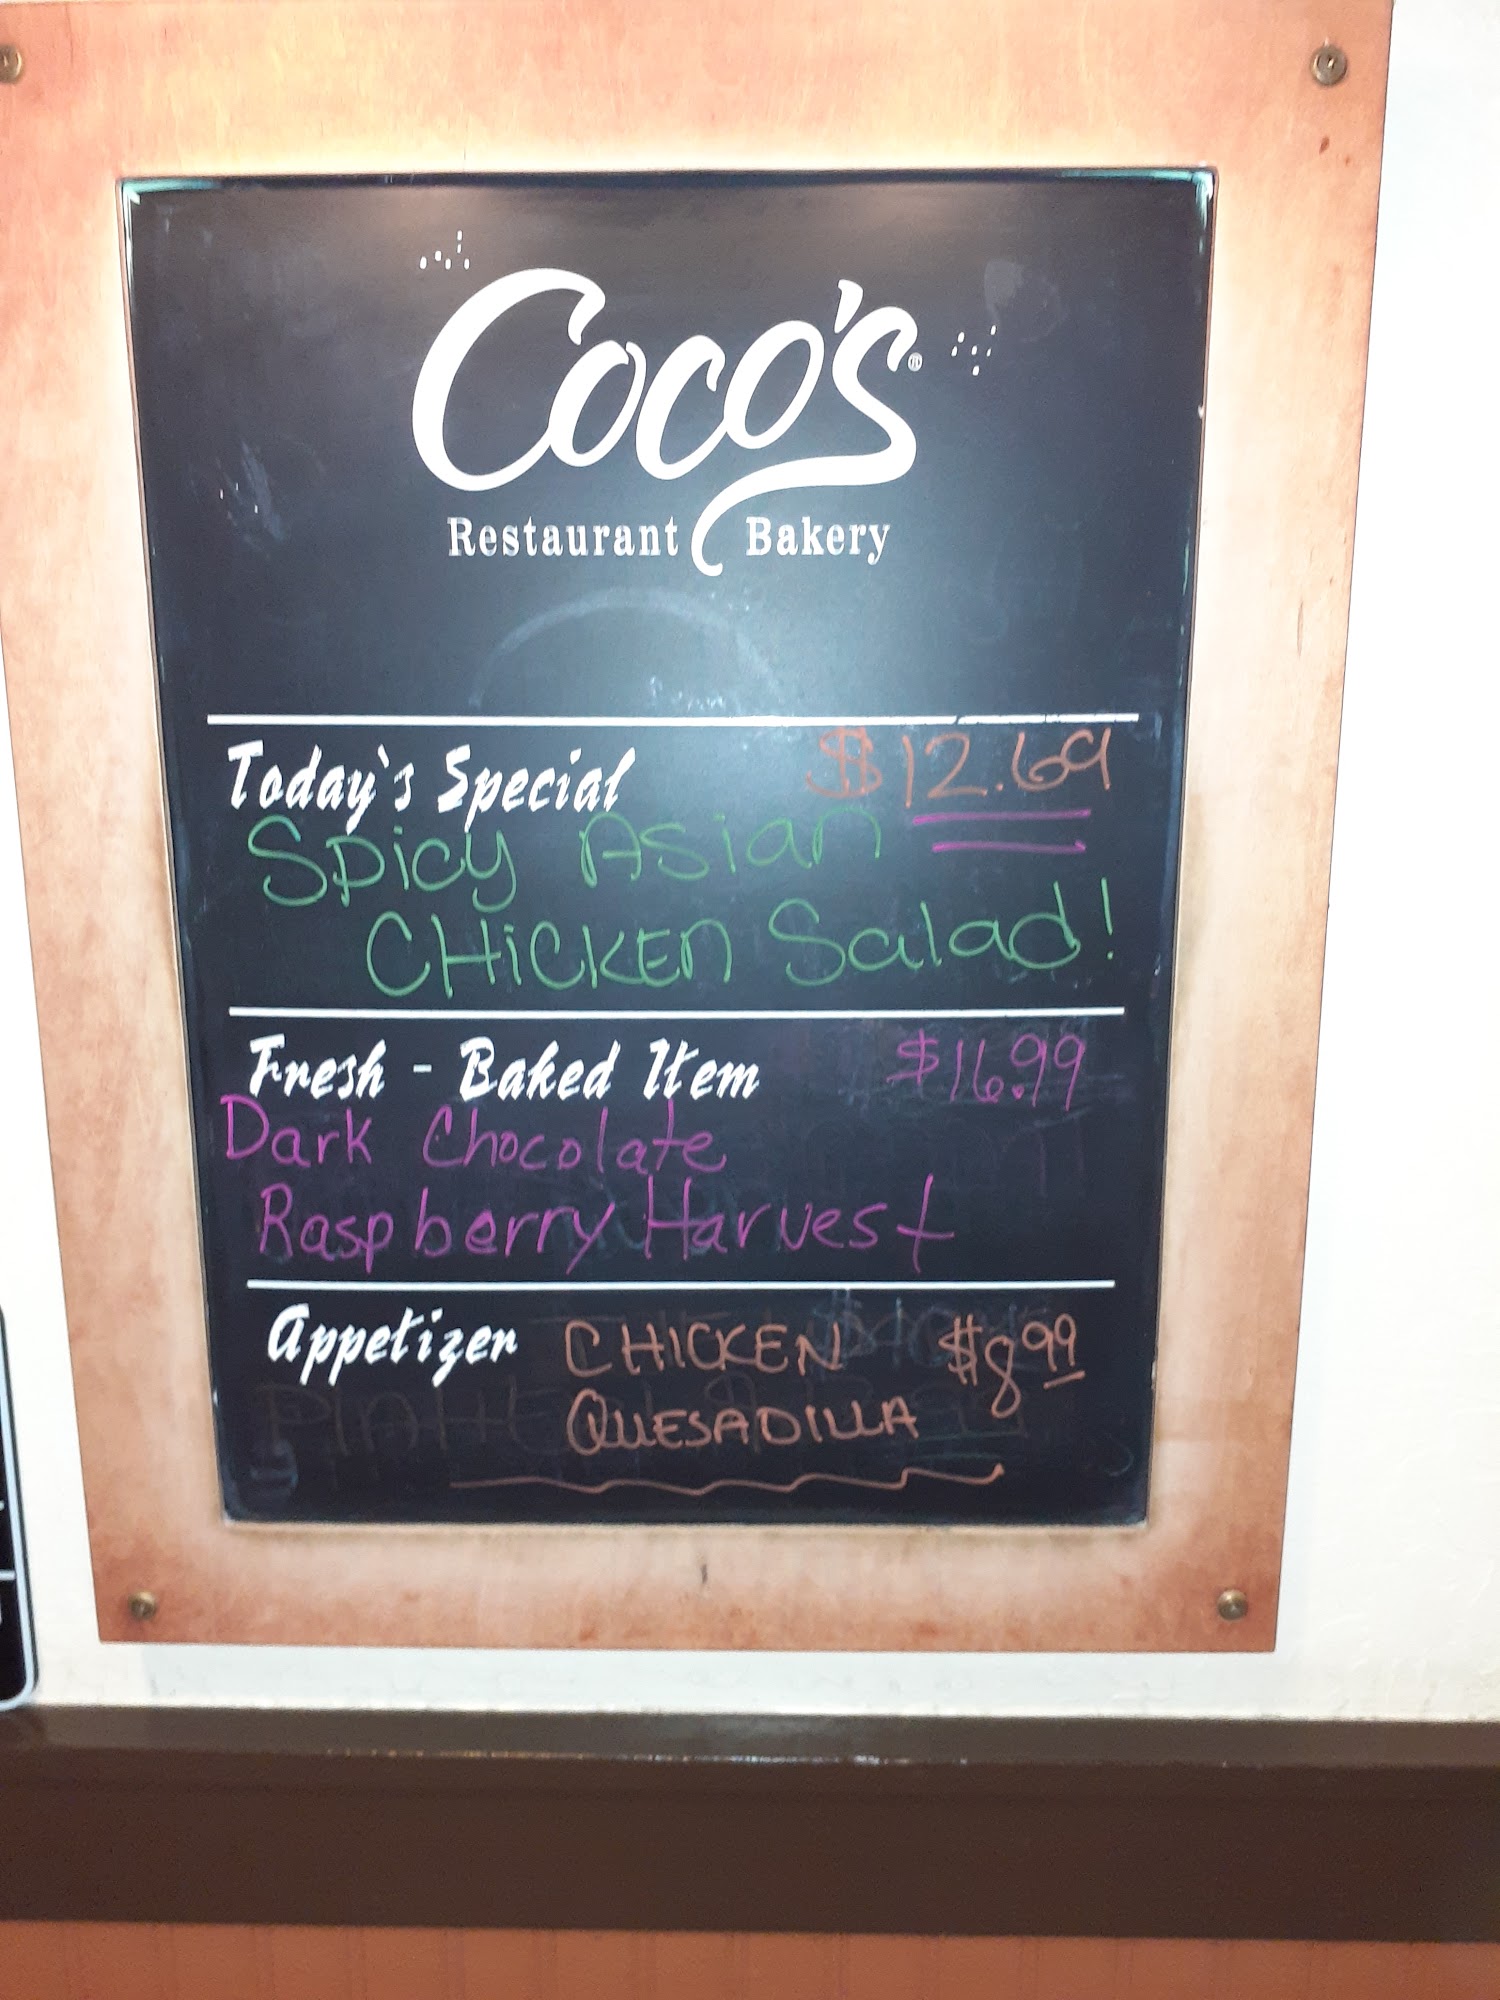 Coco's®
Restaurant Bakery
Today's Special $12.69
Spicy Asian
CHiCKEN Salad!
Fresh - Baked Item $16.99
Dark Chocolate
Raspberry Harvest
Appetizer CHICKEN $8.99
QUESADILLA